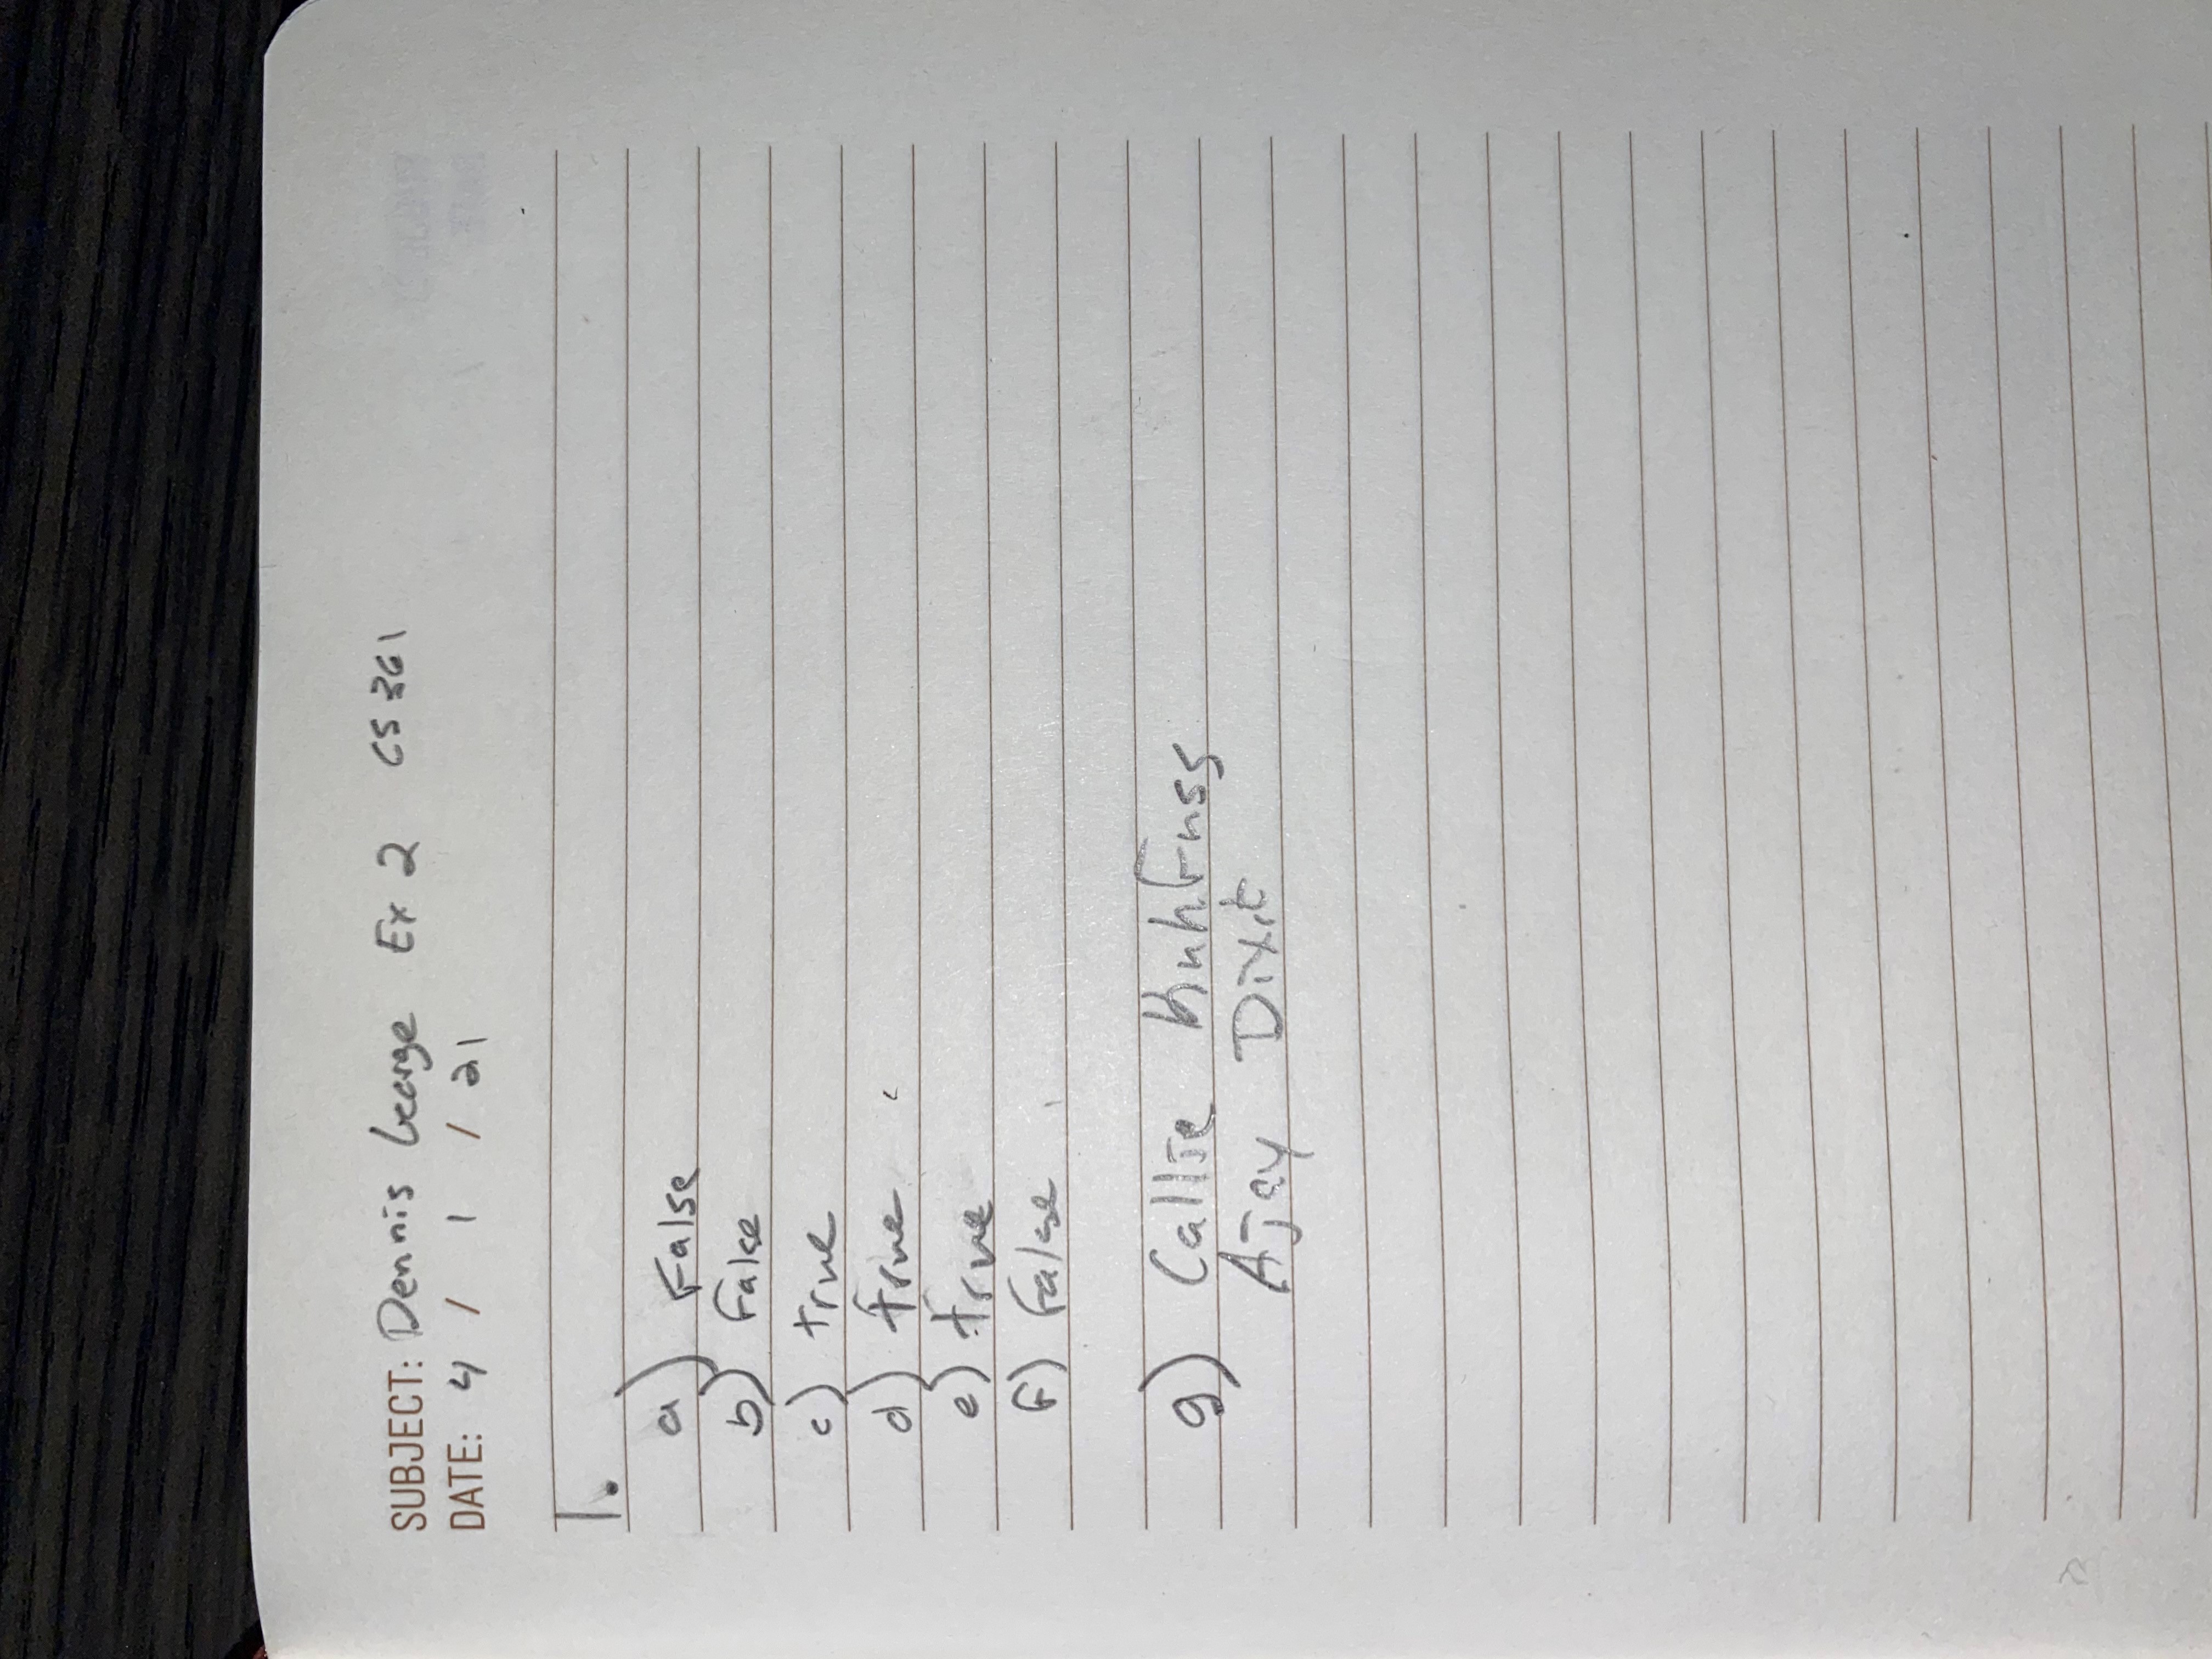 SUBJECT: Dennis George Ex 2 CS 361
DATE: 4 / 1 / 21
1.
a) False
b) False
c) true
d) true
e) true
F) False
g) Callie Kuhfuss
Ajay Dixit